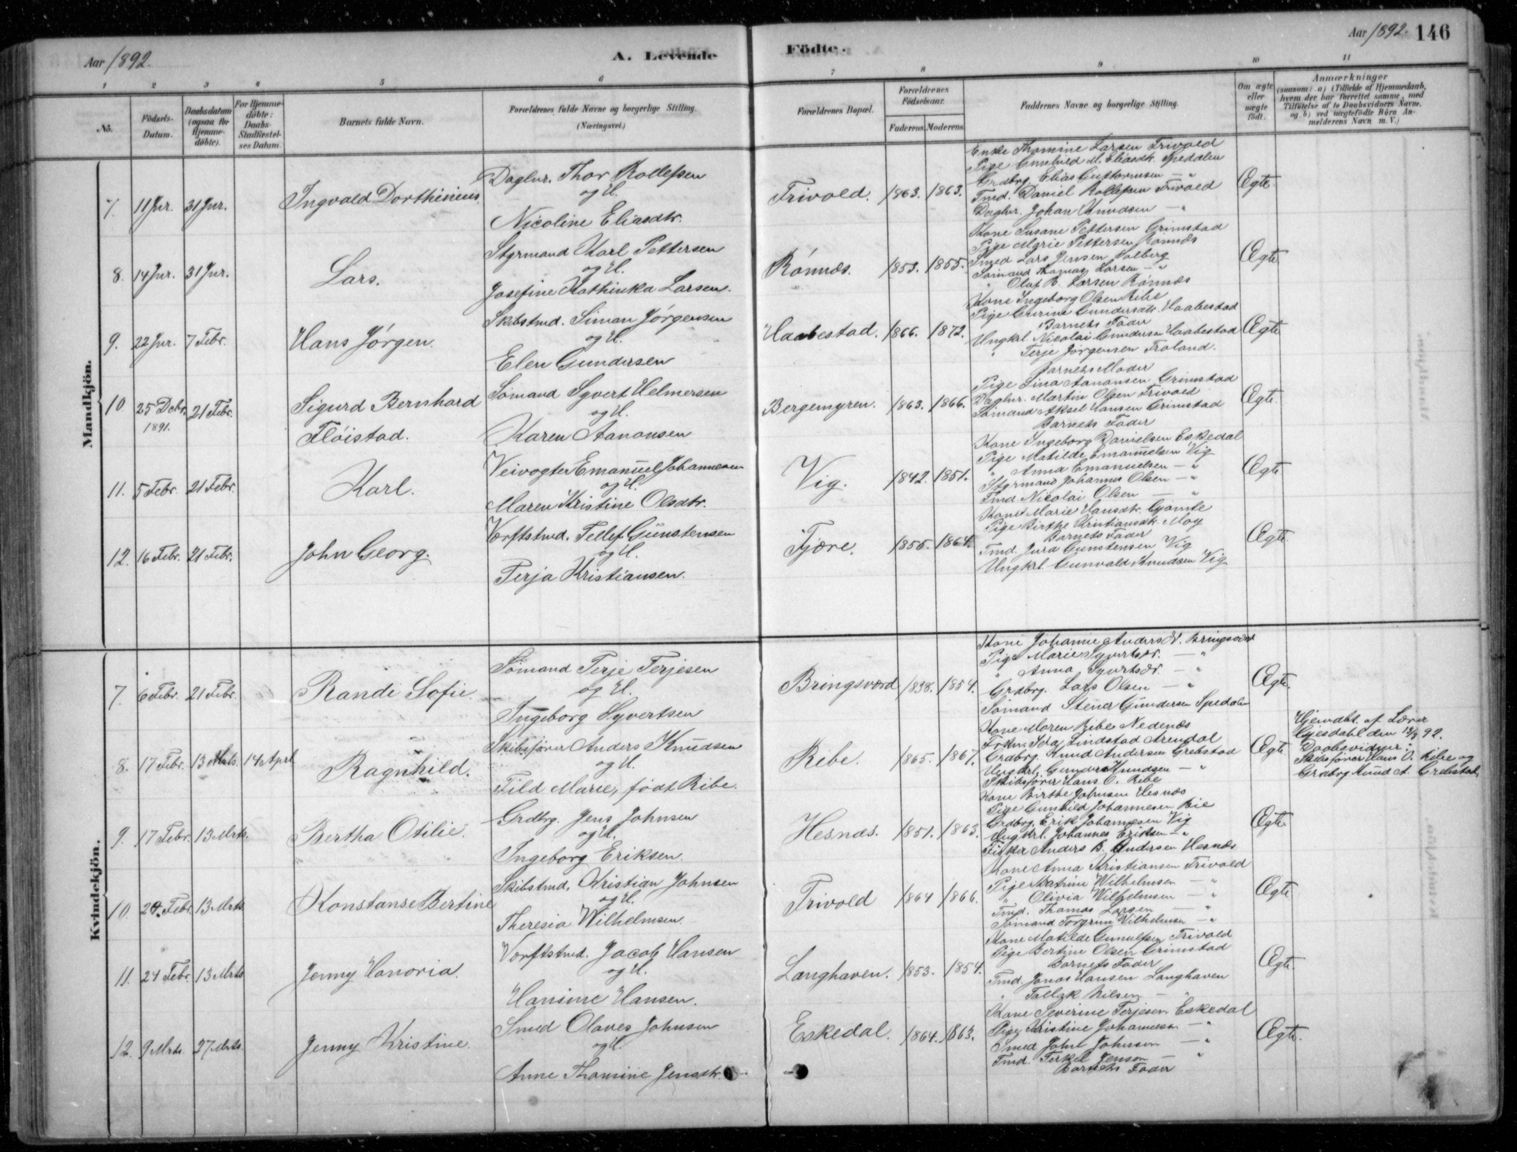 Aar 1892
A. Levende
Födte.
Aar 1892. 146
1 2 3 4 5 6 7 8 9 10 11
No.
Födsels-Datum.
Daabsdatum (ogsaa for Hjemme-döbte).
For Hjemme-döbte: Daabs-Stadfæstel-ses Datum.
Barnets fulde Navn.
Forældrenes fulde Navne og borgerlige Stilling. (Næringsvei.)
Forældrenes Bopæl.
Forældrenes Födselsaar.
Faderens. Moderens.
Faddernes Navne og borgerlige Stilling.
Om ægte eller uægte födt.
Anmærkninger
(saasom: a) i Tilfælde af Hjemmedaab, hvem der har forrettet samme, med Tilföielse af to Daabsvidners Navne, og b) ved uægtefödte Börn An-melderens Navn m. V.)
Mandkjön.
7. 11 Jnr. 31 Jnr. Ingvald Dorthinius
Daglnr. Thor Rollefsen
og H.
Nicoline Eliasdtr.
Trivold. 1863. 1863.
Enke Thomine Larsen Trivold
Pige Gunhild M. Eliasdtr. Spedalen
Grdbrg. Elias Guttormsen — "
Tmd. Daniel Rollefsen Trivold
Daglnr. Johan Knudsen — "
Ægte.
8. 14 Jnr. 31 Jnr. Lars.
Styrmand Karl Pettersen
og H.
Josefine Kathinka Larsen.
Rónnæs. 1853. 1855.
Kone Susane Pettersen Grimstad
Pige Marie Pettersen Rónnæs
Smed Lars Jensen Solberg
Sömand Thomas Larsen — "
" Oluf B. Larsen Rónnæs
Ægte.
9. 22 Jnr. 7 Febr. Hans Jörgen.
Skibstmd. Simon Jörgensen
og H.
Elen Gundersen
Haabestad. 1866. 1872.
Kone Ingeborg Olsen Ribe
Pige Gurine Gundersdtr. Haabestad
Barnets Fader
Ungkrl. Nicolai Gundersen Haabestad
" Terje Jörgensen Froland.
Ægte.
10 25 Debr. 1891. 21 Febr. Sigurd Bernhard Flöistad.
Sömand Syvert Helmersen
og H.
Karen Aanonsen
Bergemyren. 1863. 1866.
Barnets Moder
Pige Lina Aanonsen Grimstad
Daglnr. Martin Olsen Trivold
Sömand Aksel Hansen Grimstad
Barnets Fader
Ægte.
11. 5 Febr. 21 Febr. Karl.
Veivogter Emanuel Johannesen
og H.
Maren Kristine Olsdtr.
Vig. 1842. 1851.
Kone Ingeborg Danielsen Eskedal
Pige Matilde Emanuelsen Vig
" Anna Emanuelsen — "
Styrmand Johannes Olsen — "
Tmd Nicolai Olsen — "
Ægte.
12. 16 Febr. 21 Febr. John Georg.
Verftstmd. Tellef Gunstensen
og H.
Terja Kristiansen.
Tjöre. 1855. 1864.
Kone Marie Hansdtr.
Pige Birthe Kristiansdtr. Moy
Barnets Fader
Tmd. Gunstensen Vig
Ungkrl. Gunvald Knudsen Vig
Ægte.
Kvindekjön.
7. 6 Febr. 21 Febr. Randi Sofie.
Sömand Terje Terjesen
og H.
Ingeborg Syvertsen
Bringsværd 1838. 1854.
Kone Johanne Anders D. Bringsværd
Pige Marie Syvertsdr. — "
" Anna Syvertsdr. — "
Grdbrg. Lars Olsen — "
Sömand Stener Gundersen Spedalen
Ægte.
8. 17 Febr. 13 Mrts. 14 April Ragnhild.
Skibsförer Anders Knudsen
og H.
Tild Marie, födt Ribe.
Ribe. 1865. 1867.
Kone Maren Ribe Nedenæs
Frkn. Ida Lindstad Arendal
Grdbrg. Knud Andersen Grefstad
Ungkrl. Gunder Knudsen — "
Skibsförer Hans O. Ribe
Ægte
Hjemdbt. af Lærer
Daabsvidner:
Skibsförer Hans O. Ribe og
Grdbrg Knud A. Grefstad.
9. 17 Febr. 13 Mrts. Bertha Otilie.
Grdbrg. Jens Johnsen
og H.
Ingeborg Eriksen.
Hesnæs. 1851. 1863.
Kone Birthe Johnsen Hesnæs
Pige Gunhild Johannesen Bie
Grdbrg. Erik Johannesen Vig
Ungkrl. Johannes Eriksen — "
Fisker Anders B. Andersen Hesnæs
Ægte.
10 24. Febr. 13 Mrts. Konstanse Bertine
Skibstmd. Kristian Johnsen
og H.
Theresia Wilhelmsen
Trivold 1864 1866.
Kone Anna Kristiansen Trivold
Pige Katrine Wilhelmsen — "
" Olivia Wilhelmsen — "
Tmd. Thomas Larsen — "
Sömand Torgrim Wilhelmsen — "
Ægte.
11. 24 Febr. 13 Mrts. Jenny Hanoria.
Værftstmd. Jacob Hansen
og H.
Hansine Hansen.
Langhaven. 1853. 1854.
Kone Matilde Gunulfsen Trivold
Pige Bertine Olsen Grimstad
Barnets Fader
Tmd. Jonas Hansen Langhaven
" Tallak Nilsen — "
Ægte.
12. 9 Mrts. 27 Mrts. Jenny Kristine
Smed Olaves Johnsen
og H.
Anne Thomine Jensdtr.
Eskedal. 1864. 1863.
Kone Severine Terjesen Eskedal
Pige Kristine Johannesen — "
Smed John Johnsen — "
Tmd. Terkel Jenson — "
Barnets Fader
Ægte.